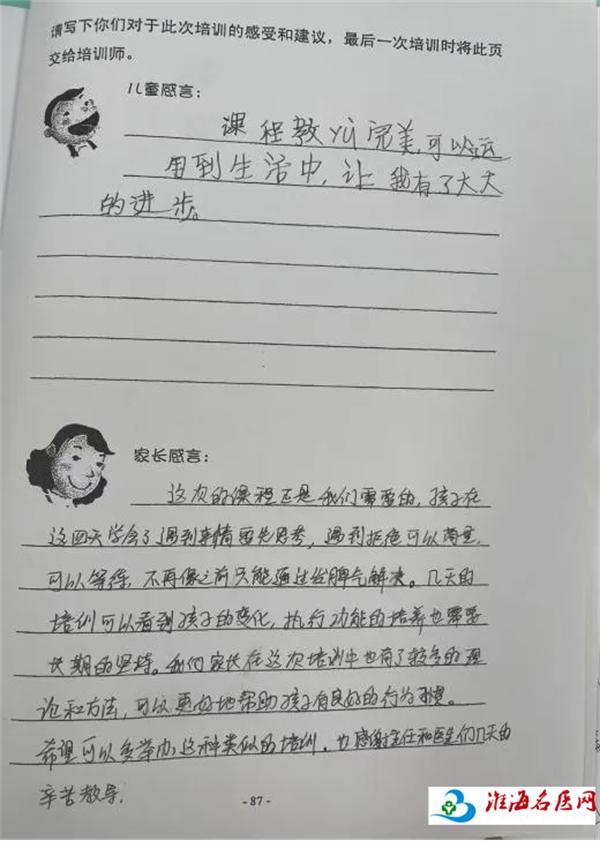 请写下你们对于此次培训的感受和建议，最后一次培训时将此页
交给培训师。
儿童感言：
课程教yù完美,可以运
用到生活中,让我有了大大
的进步。
家长感言：
这次的课程正是我们需要的,孩子在
这四天学会了遇到事情要先思考,遇到拒绝可以商量,
可以等待,不再像之前只能通过发脾气解决。几天的
培训可以看到孩子的变化,执行功能的培养也需要
长期的坚持。我们家长在这次培训中也有了较多的理
论和方法,可以更好地帮助孩子有良好的行为习惯。
希望可以多举办这种类似的培训。也感谢主任和医生们几天的
辛苦教导.
- 87 -
淮海名医网